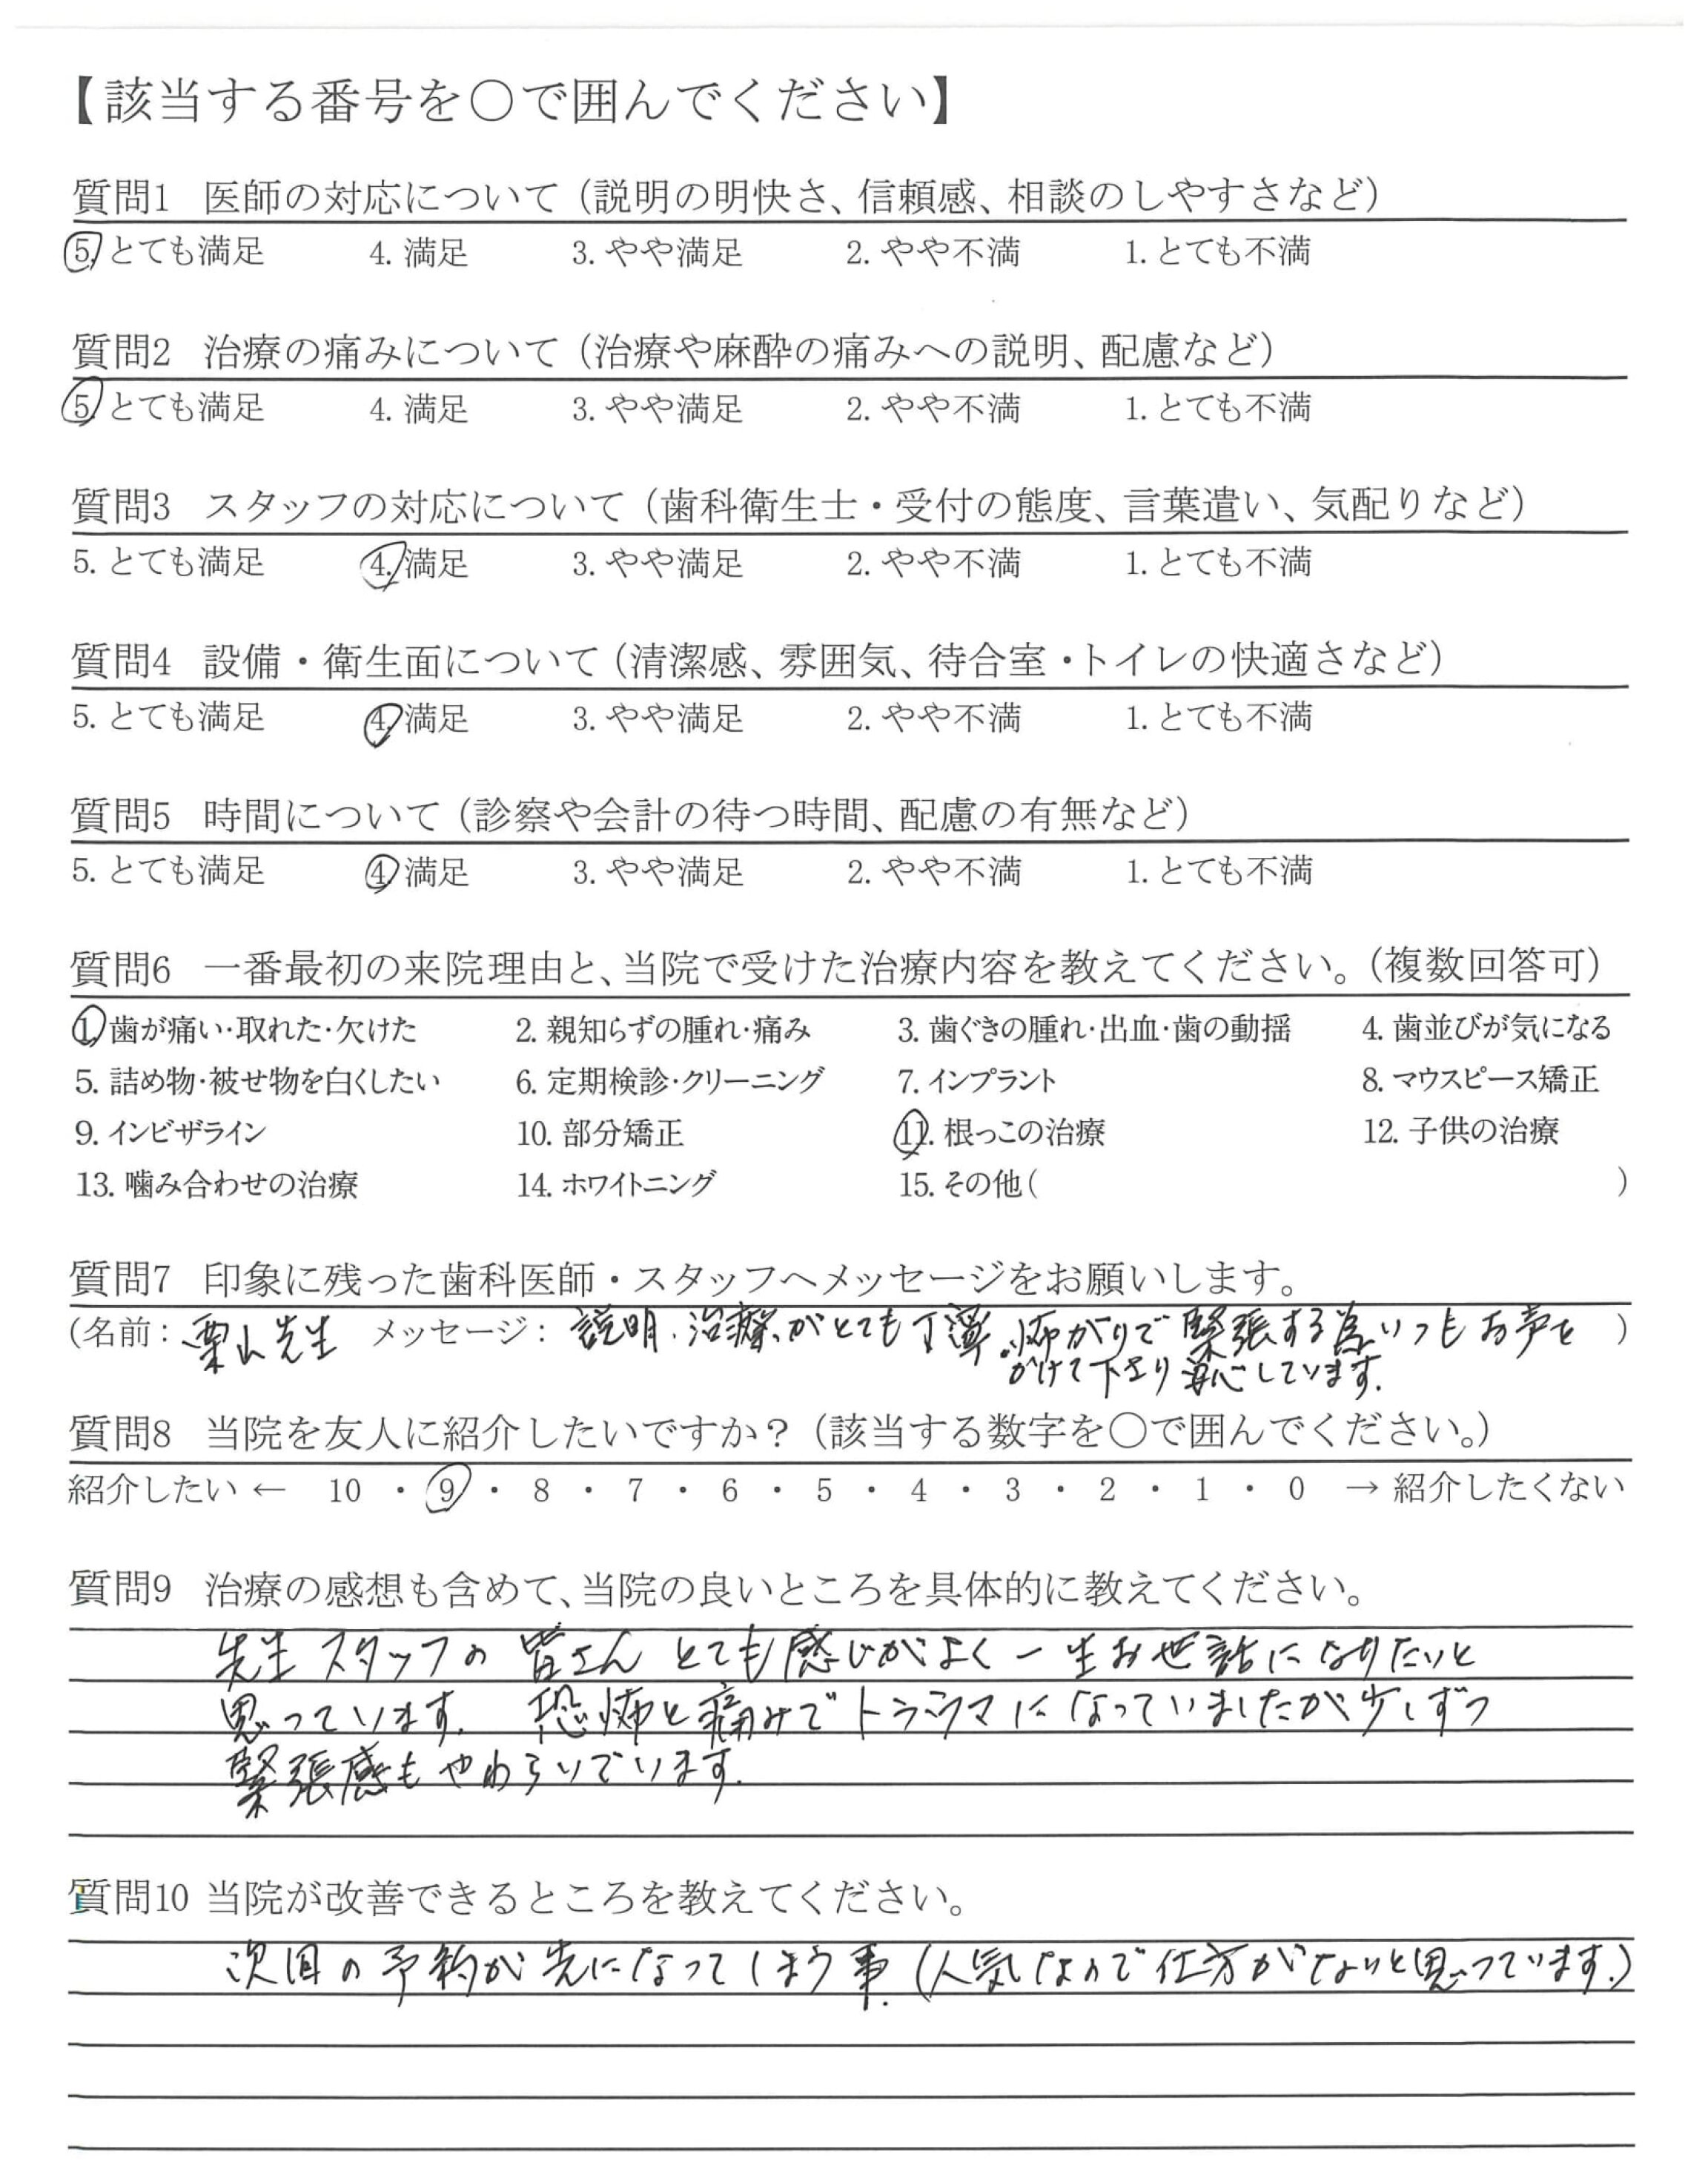 【該当する番号を○で囲んでください】
質問1 医師の対応について（説明の明快さ、信頼感、相談のしやすさなど）
5. とても満足 4. 満足 3. やや満足 2. やや不満 1. とても不満
質問2 治療の痛みについて（治療や麻酔の痛みへの説明、配慮など）
5. とても満足 4. 満足 3. やや満足 2. やや不満 1. とても不満
質問3 スタッフの対応について（歯科衛生士・受付の態度、言葉遣い、気配りなど）
5. とても満足 4. 満足 3. やや満足 2. やや不満 1. とても不満
質問4 設備・衛生面について（清潔感、雰囲気、待合室・トイレの快適さなど）
5. とても満足 4. 満足 3. やや満足 2. やや不満 1. とても不満
質問5 時間について（診察や会計の待つ時間、配慮の有無など）
5. とても満足 4. 満足 3. やや満足 2. やや不満 1. とても不満
質問6 一番最初の来院理由と、当院で受けた治療内容を教えてください。（複数回答可）
1. 歯が痛い・取れた・欠けた 2. 親知らずの腫れ・痛み 3. 歯ぐきの腫れ・出血・歯の動揺 4. 歯並びが気になる
5. 詰め物・被せ物を白くしたい 6. 定期検診・クリーニング 7. インプラント 8. マウスピース矯正
9. インビザライン 10. 部分矯正 11. 根っこの治療 12. 子供の治療
13. 噛み合わせの治療 14. ホワイトニング 15. その他（ ）
質問7 印象に残った歯科医師・スタッフへメッセージをお願いします。
（名前： 栗山先生 メッセージ： 説明、治療がとても丁寧。怖がりで緊張する為いつもお声を ）
かけて下さり安心しています.
質問8 当院を友人に紹介したいですか？（該当する数字を○で囲んでください。）
紹介したい ← 10 ・ 9 ・ 8 ・ 7 ・ 6 ・ 5 ・ 4 ・ 3 ・ 2 ・ 1 ・ 0 → 紹介したくない
質問9 治療の感想も含めて、当院の良いところを具体的に教えてください。
先生 スタッフの 皆さん とても感じがよく 一生お世話になりたいと
思っています. 恐怖と痛みでトラウマになっていましたが少しずつ
緊張感もやわらいでいます.
質問10 当院が改善できるところを教えてください。
次回の予約が先になってしまう事.（人気なので仕方がないと思っています.）